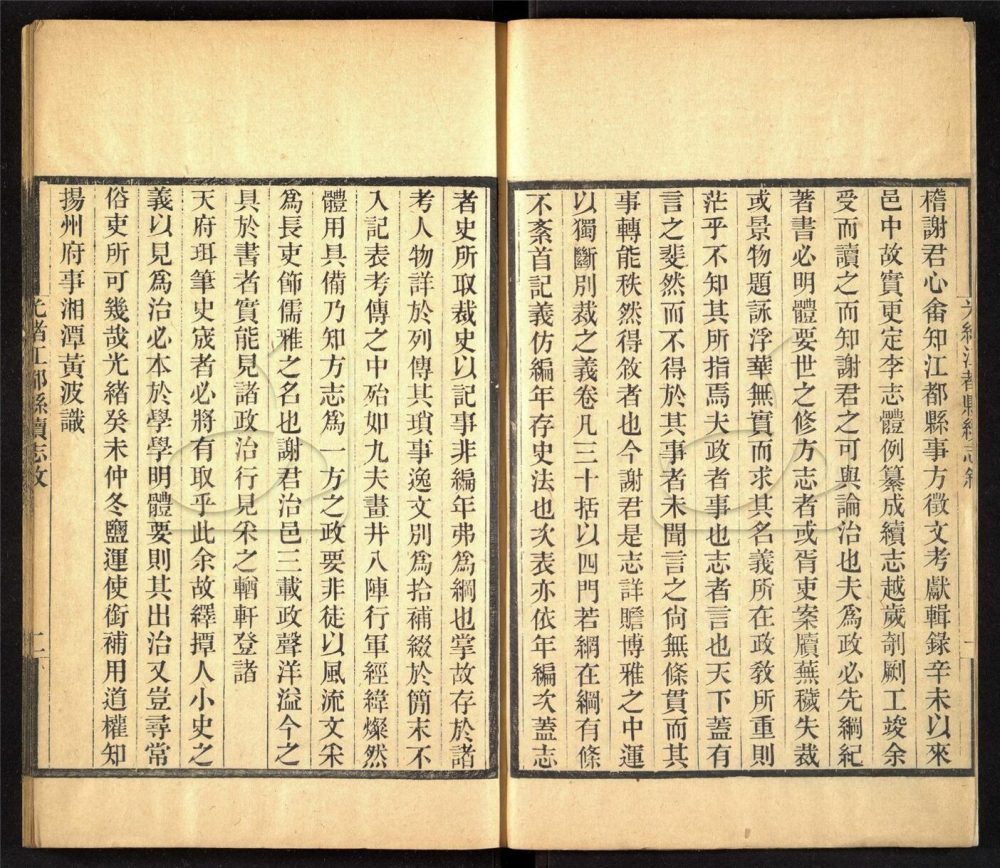 稽謝君心畬知江都縣事方徵文考獻輯錄辛未以來
邑中故實更定李志體例纂成續志越歲剞劂工竣余
受而讀之而知謝君之可與論治也夫爲政必先綱紀
著書必明體要世之修方志者或胥吏案牘蕪穢失裁
或景物題詠浮華無實而求其名義所在政敎所重則
茫乎不知其所指焉夫政者事也志者言也天下蓋有
言之斐然而不得於其事者未聞言之尙無條貫而其
事轉能秩然得敘者也今謝君是志詳贍博雅之中運
以獨斷別裁之義卷凡三十括以四門若網在綱有條
不紊首記義仿編年存史法也次表亦依年編次蓋志
者史所取裁史以記事非編年弗爲綱也掌故存於諸
考人物詳於列傳其瑣事逸文別爲拾補綴於簡末不
入記表考傳之中殆如九夫畫井八陣行軍經緯燦然
體用具備乃知方志爲一方之政要非徒以風流文采
爲長吏飾儒雅之名也謝君治邑三載政聲洋溢今之
具於書者實能見諸政治行見采之輶軒登諸
天府珥筆史宬者必將有取乎此余故繹撢人小史之
義以見爲治必本於學學明體要則其出治又豈尋常
俗吏所可幾哉光緒癸未仲冬鹽運使銜補用道權知
揚州府事湘潭黃波識
光緒江都縣續志敘
二